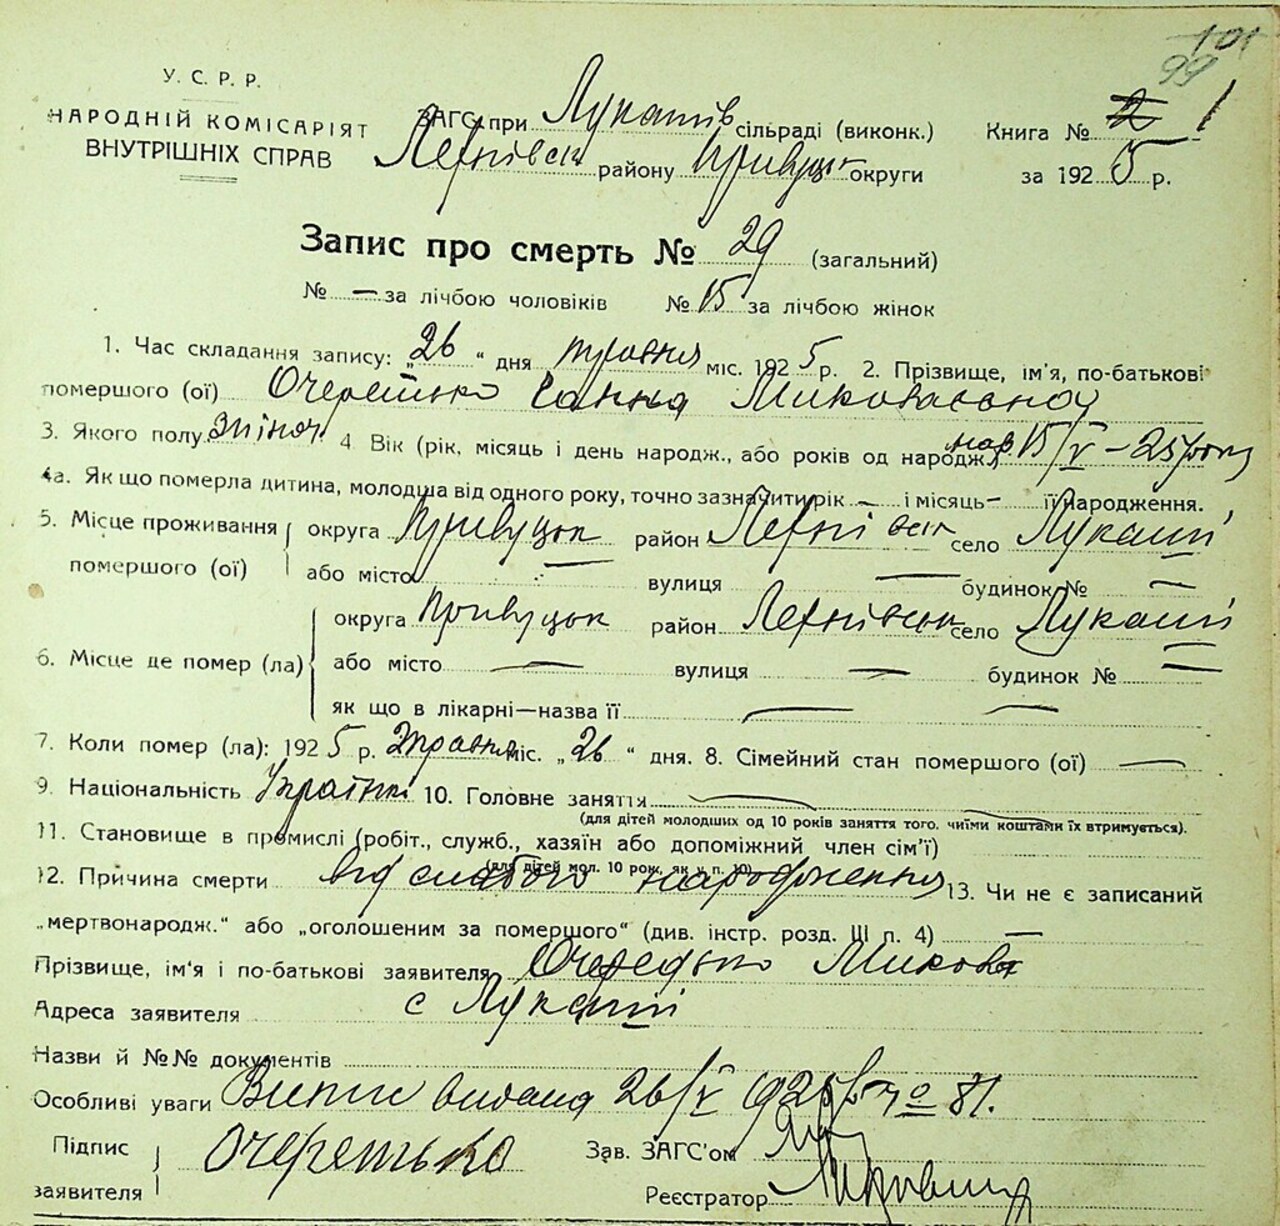 101
99
У. С. Р. Р.
НАРОДНІЙ КОМІСАРІЯТ
ВНУТРІШНІХ СПРАВ
ЗАГС при Лукашів сільраді (виконк.)
районy Прилуцьк округи
Книга № 2 1
за 1925 р.
Запис про смерть № 29 (загальний)
№ — за лічбою чоловіків № 15 за лічбою жінок
1. Час складання запису: „26" дня травня міс. 1925 р. 2. Прізвище, ім'я, по-батькові
помершого (ої) Очеретько Ганна Миколаевна
3. Якого полу жіноч. 4 Вік (рік, місяць і день народж., або років од народж.) нар. 15/V – 25 року
4а. Як що померла дитина, молодша від одного року, точно зазначити рік — і місяць — її народження.
5. Місце проживання помершого (ої) округа Прилуцьк район село Лукаші
або місто — вулиця — будинок № —
6. Місце де помер (ла) округа Прилуцьк район село Лукаші
або місто — вулиця — будинок № —
як що в лікарні—назва її —
7. Коли помер (ла): 1925 р. травня міс. „26" дня. 8. Сімейний стан помершого (ої) —
9. Національність 10. Головне заняття —
(для дітей молодших од 10 років заняття того, чиїми коштами їх втримується).
11. Становище в промислі (робіт., служб., хазяїн або допоміжний член сім'ї)
(для дітей мол. 10 рож. як у п. 10)
12. Причина смерти від слабого народження 13. Чи не є записаний
„мертвонародж." або „оголошеним за помершого" (див. інстр. розд. III п. 4) —
Прізвище, ім'я і по-батькові заявителя Очередько Микола
Адреса заявителя с Лукаші
Назви й №№ документів
Особливі уваги Випис видана 26/V 1925 р № 81.
Підпис заявителя Очеретько
Зав. ЗАГС'ом
Реєстратор